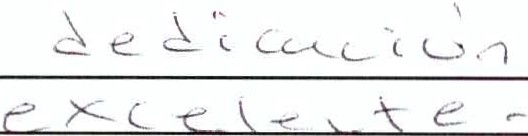 dedicación
excelente -